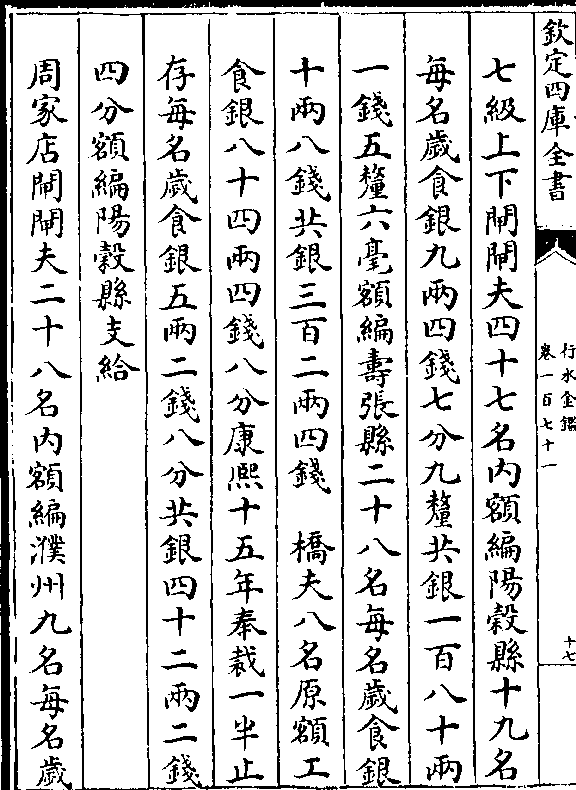 欽定四庫全書
行水金鑑
卷一百七十一
十七
七級上下閘閘夫四十七名内額編陽榖縣十九名
每名歲食銀九兩四錢七分九釐共銀一百八十兩
一錢五釐六毫額編壽張縣二十八名每名歲食銀
十兩八錢共銀三百二兩四錢　橋夫八名原額工
食銀八十四兩四錢八分康熙十五年奉裁一半止
存每名歲食銀五兩二錢八分共銀四十二兩二錢
四分額編陽榖縣支給
周家店閘閘夫二十八名内額編濮州九名每名歲